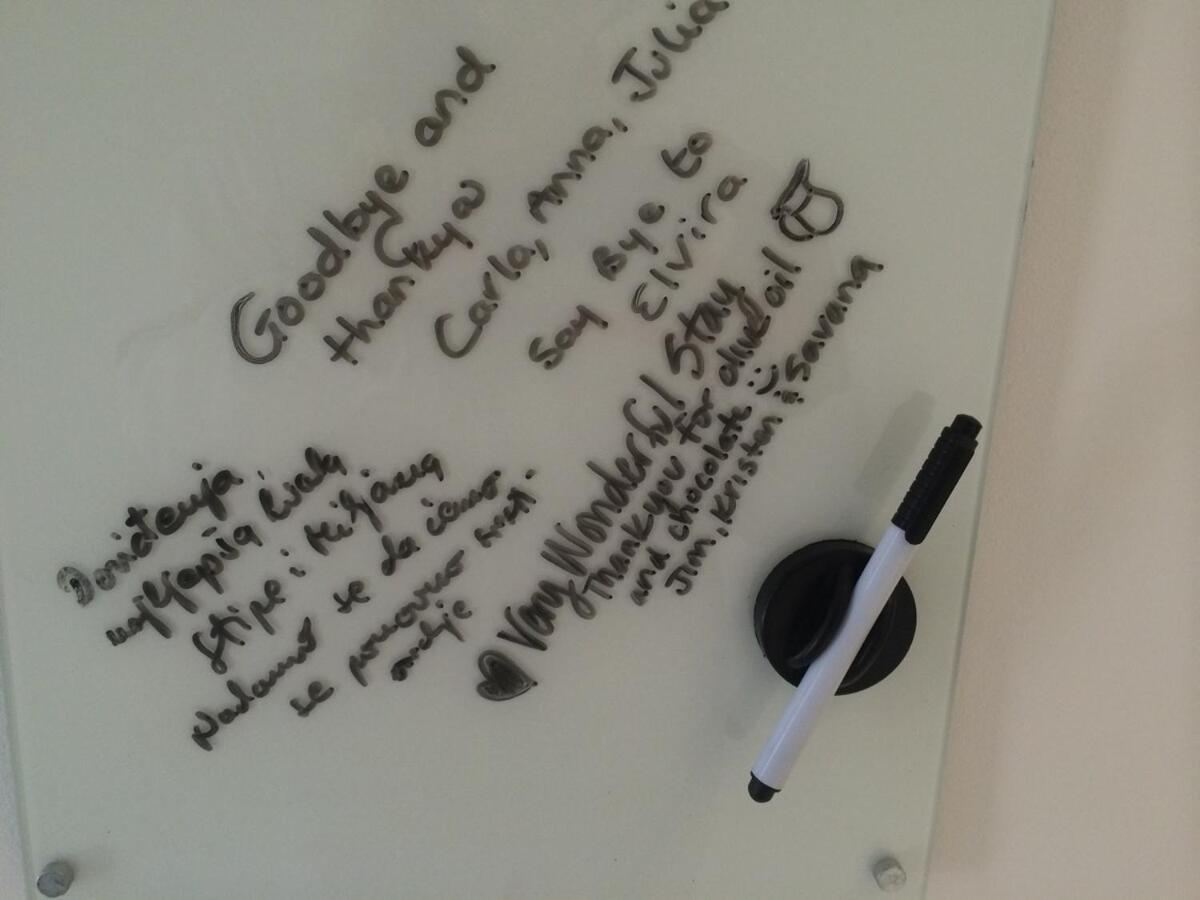 Goodbye and
thankyou
Carla, Anna, Julia
Say Bye to
Elvira
Very Wonderful Stay
thank you for olive oil
and chocolate :)
Jim, Kristen & Savana
Doviđenja
najljepša hvala
Stipe i Miljana
Nadamo se da ćemo
se ponovno sresti.
ovdje